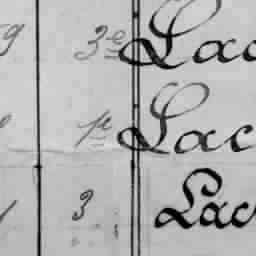 9 3e Lac
1e Lac
3 Lac